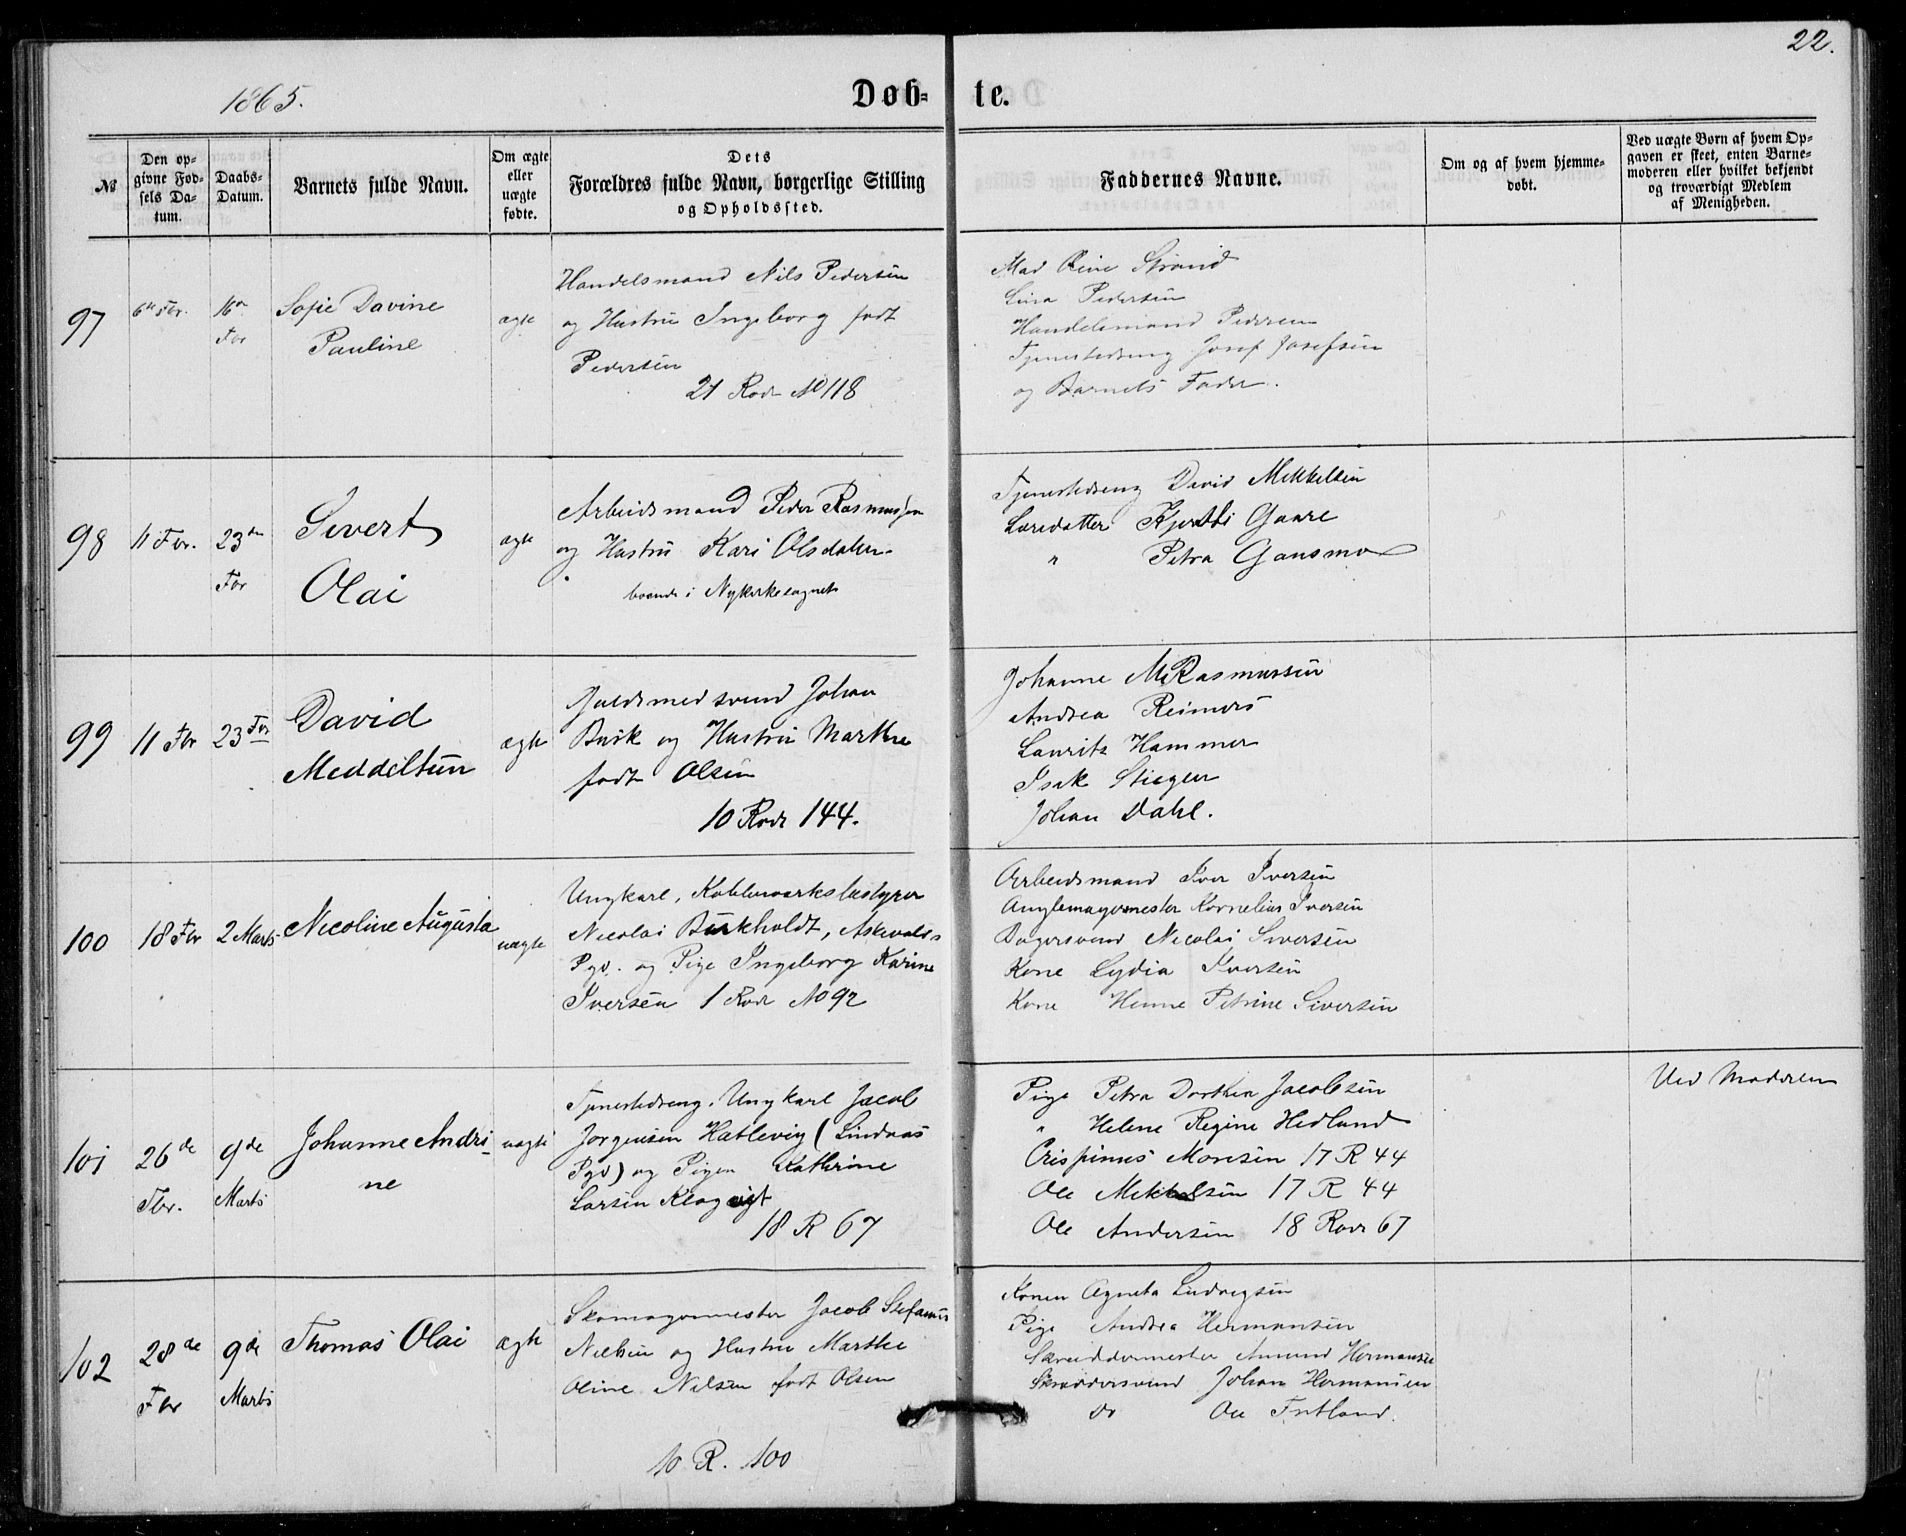 22.
1865.
Døb- te.
№
Den op-
givne Fød-
sels Da-
tum.
Daabs-
Datum.
Barnets fulde Navn.
Om ægte
eller
uægte
fødte.
Dets
Forældres fulde Navn, borgerlige Stilling
og Opholdssted.
Faddernes Navne.
Om og af hvem hjemme-
døbt.
Ved uægte Børn af hvem Op-
gaven er skeet, enten Barne-
moderen eller hvilket bekjendt
og troværdigt Medlem
af Menigheden.
97
6te Fbr.
16de
Fbr
Sofie Davine
Pauline
ægte
Handelsmand Nils Pedersen
og Hustru Ingeborg født
Pedersen
21 Rode No 118
Mad Oline Strand
Lina Pedersen
Handelsmand Pedersen
Tjenestedreng Josef Josefsen
og Barnets Fader.
98
11 Fbr.
23de
Fbr
Sivert
Olai
ægte
Arbeidsmand Peder Rasmussen
og Hustru Kari Olsdatter
boende i Nykirkesognet
Tjenestedreng David Mikkelsen
Kjersti Gaare
" Petra Gansmo
99
11 Fbr
23 Fbr
David
Meddeltun
ægte
Guldsmedsvend Johan
Busk og Hustru Marthe
født Olsen
10 Rode 144.
Johanne M Rasmussen
Andrea Reimers
Laurits Hammer
Isak Stiegler
Johan Dahl.
100
18 Fbr
2 Marts
Nicoline Augusta
uægte
Ungkarl, Kobberværksbestyrer
Nicolai Burkholdt, Askevolds
Pgd. og Pige Ingeborg Karine
Iversen 1 Rode No 92
Arbeidsmand Iver Iversen
Anglemagermester Kornelius Iversen
Bagersvend Nicolai Siversen
Kone Lydia Iversen
Kone Henne Petrine Siversen
101
26de
Fbr.
9de
Marts
Johanne Andri-
ne
uægte
Tjenestedreng, Ungkarl Jacob
Jørgensen Hatlevig (Lindaas
Pgd) og Pigen Kathrine
Larsen
18 R 67
Pige Petra Dorthea Jacobsen
" Helene Regine Hedland
Crispinus Monsen 17 R 44
Ole Mikkelsen 17 R 44
Ole Andersen 18 Rode 67
Ved Moderen
102
28de
Fbr
9de
Marts
Thomas Olai
ægte
Skomagermester Jacob Stefanus
Nielsen og Hustru Marthe
Oline Nilsen født Olsen
10 R. 100
Konen Agneta Ludvigsen
Pige Andrea Hermansen
Skræddermester Amund Hermansen
Skræddersvend Johan Hermansen
do Ole Fretland.